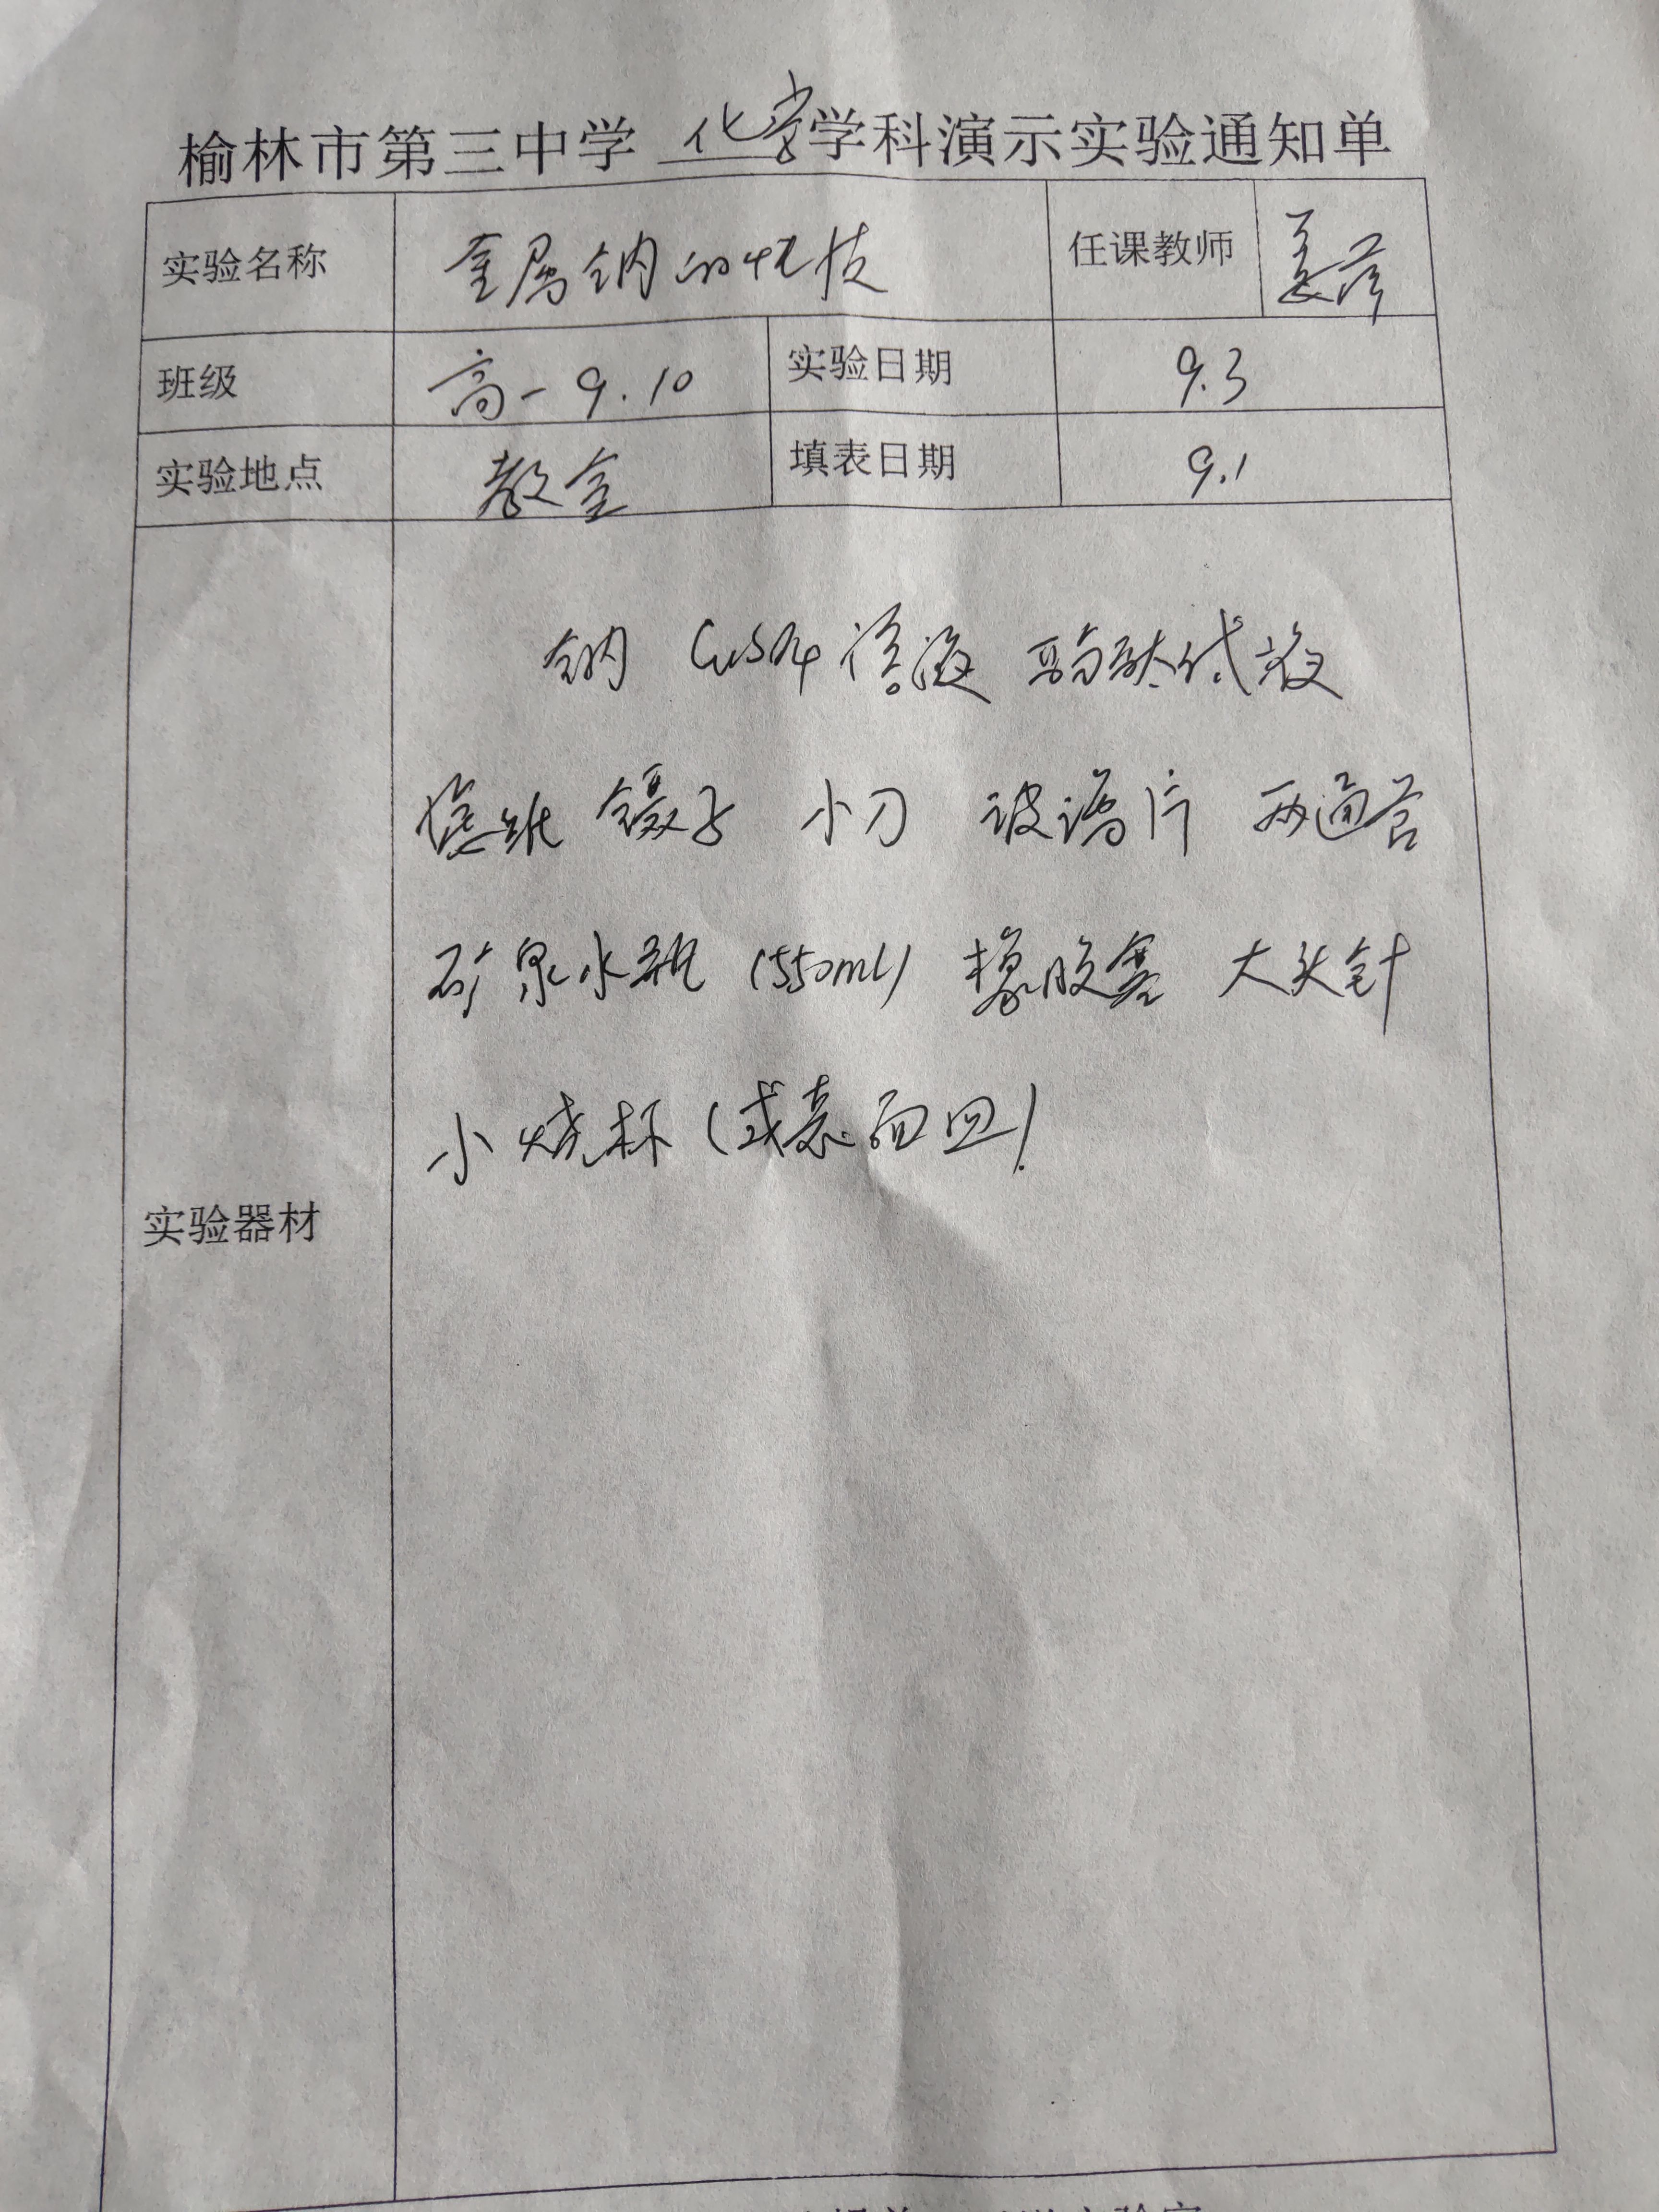 榆林市第三中学 化学学科演示实验通知单
实验名称 金属钠的性质 任课教师 姜萍
班级 高一 9.10 实验日期 9.3
实验地点 教室 填表日期 9.1
钠 CuSO4溶液 酚酞试液
滤纸 镊子 小刀 玻璃片 两通管
矿泉水瓶 (550mL) 橡胶塞 大头针
实验器材 小烧杯 (或表面皿)